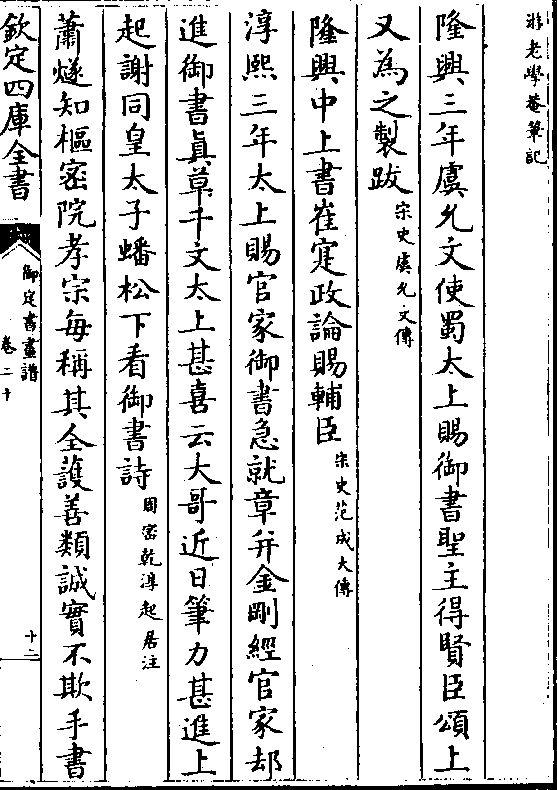 游老學菴筆記
隆興三年虞允文使蜀太上賜御書聖主得賢臣頌上
又為之製跋宋史虞允文傳
隆興中上書崔寔政論賜輔臣宋史范成大傳
淳熙三年太上賜官家御書急就章并金剛經官家却
進御書真草千文太上甚喜云大哥近日筆力甚進上
起謝同皇太子蟠松下看御書詩周密乾淳起居注
蕭燧知樞密院孝宗每稱其全護善類誠實不欺手書
欽定四庫全書
御定書畫譜
卷二十
十二